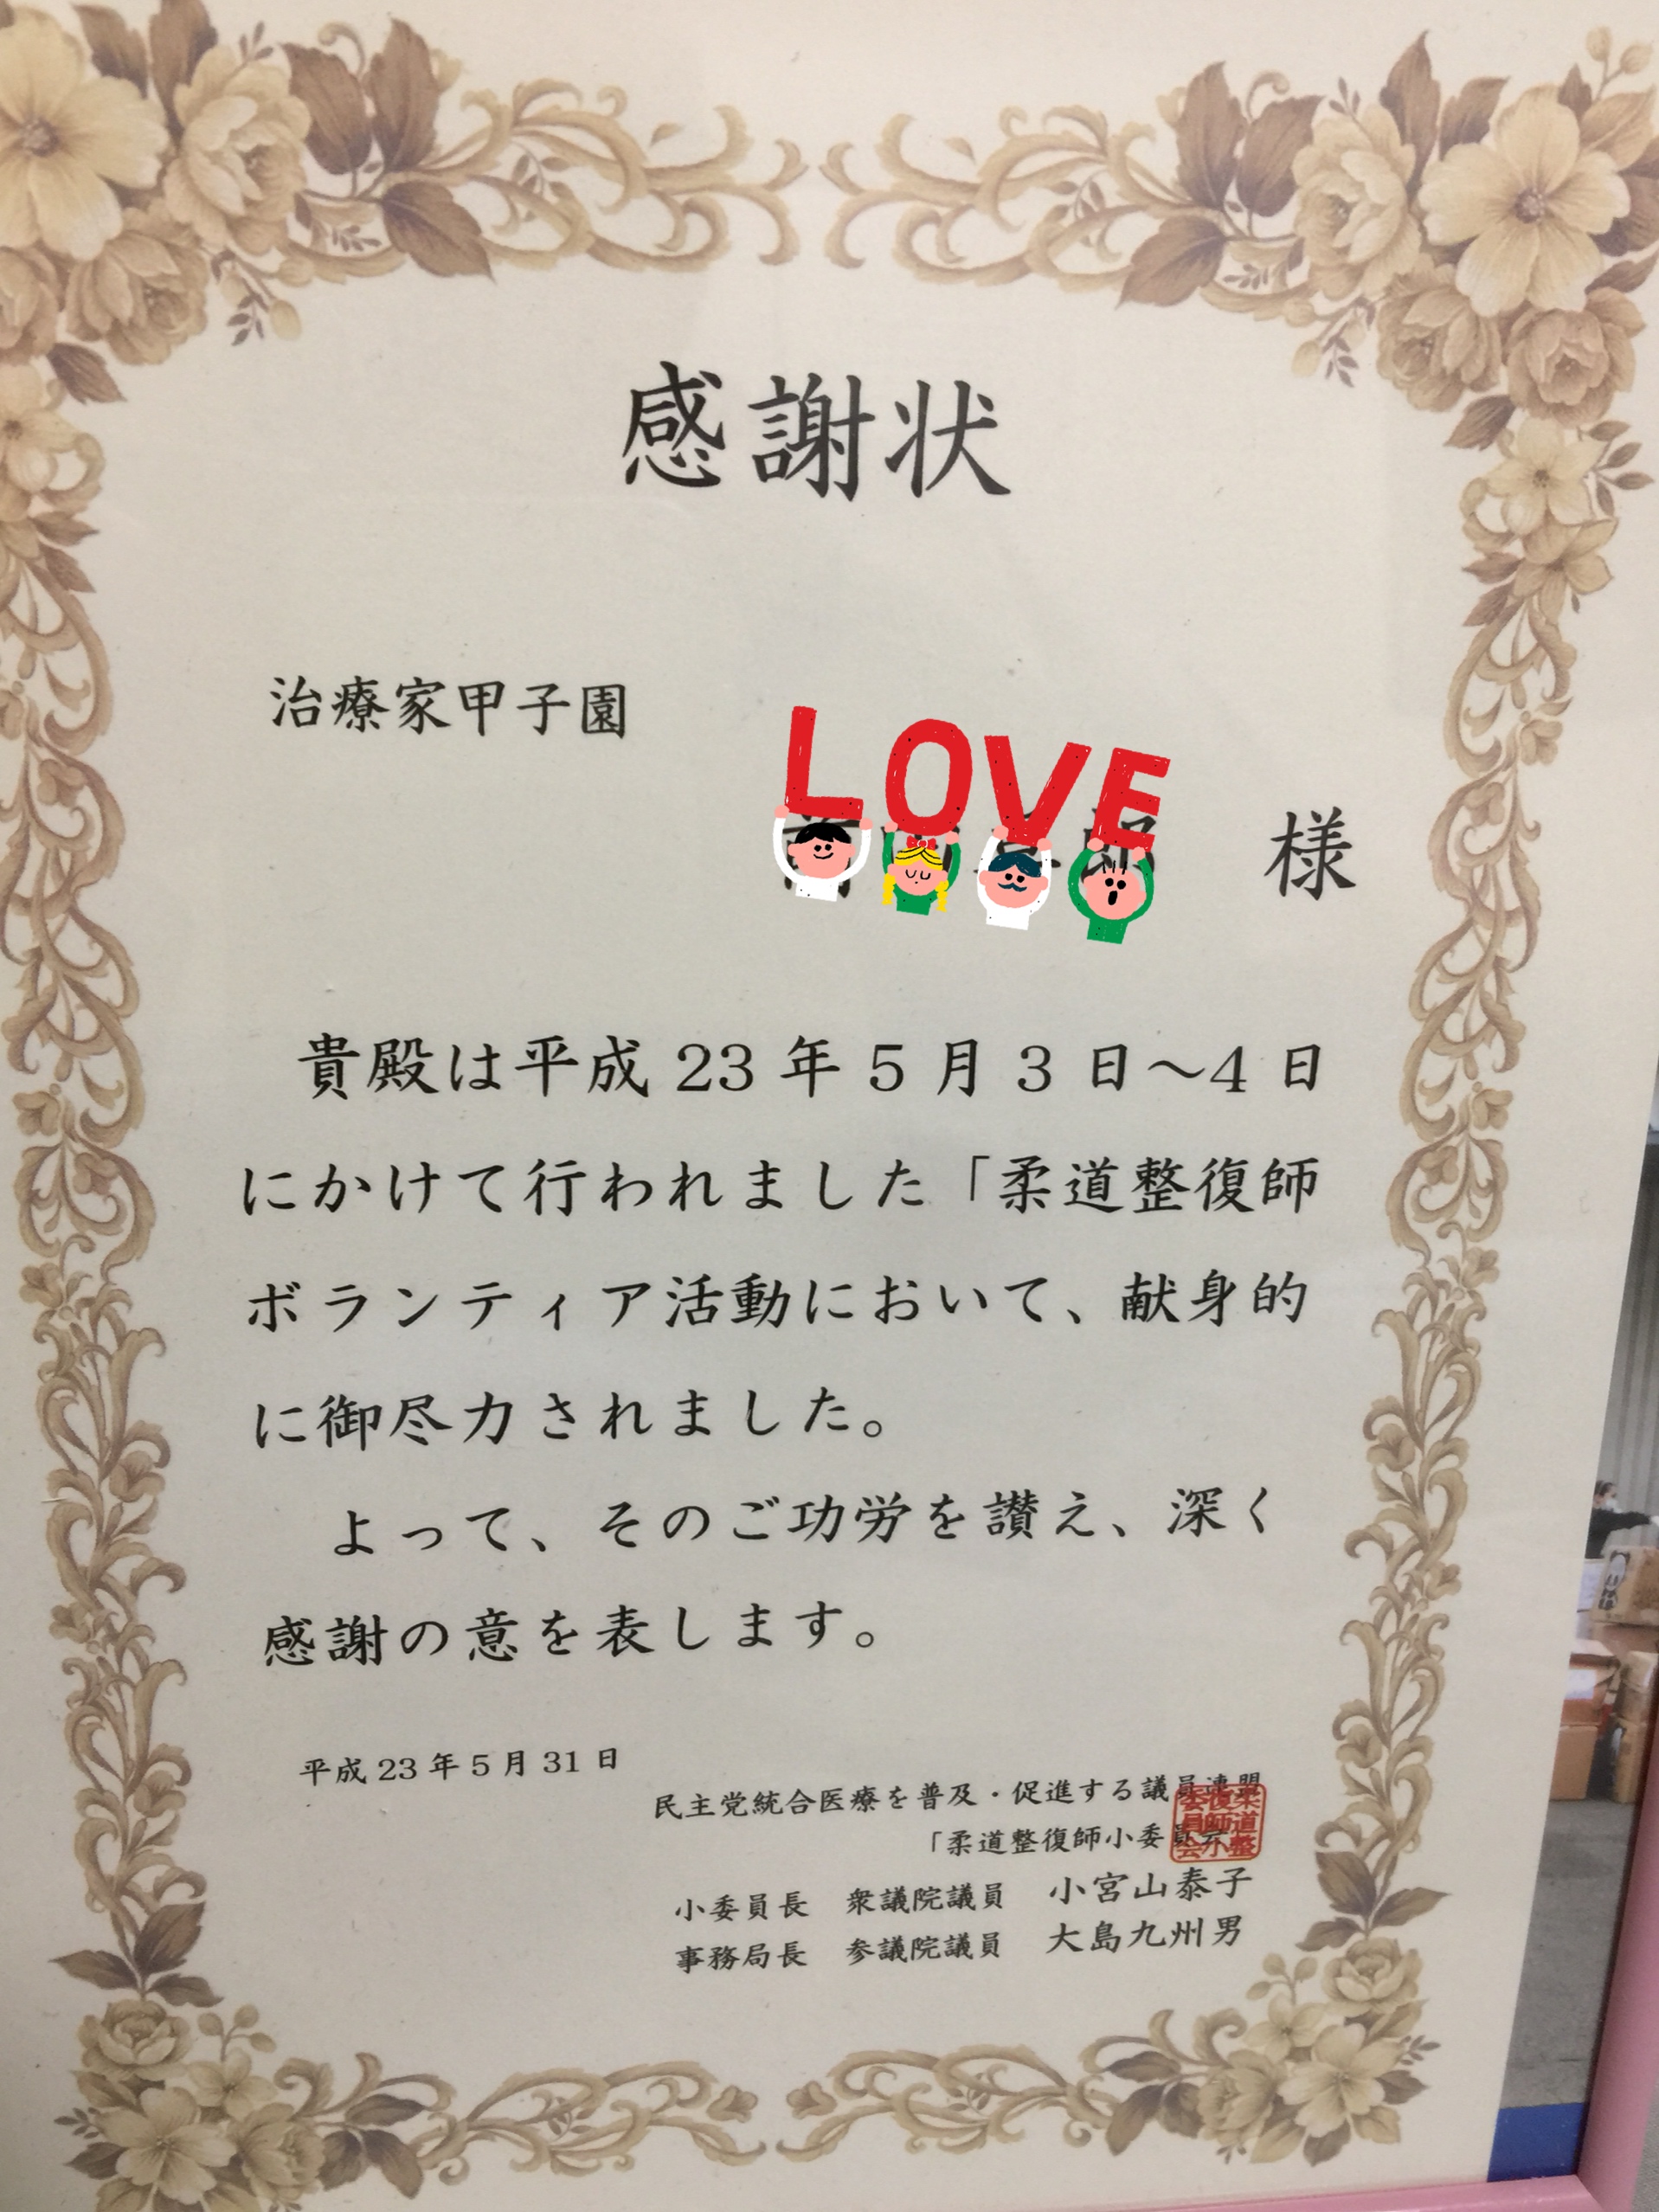 感謝状
治療家甲子園
LOVE
様
貴殿は平成23年5月3日～4日
にかけて行われました「柔道整復師
ボランティア活動において、献身的
に御尽力されました。
よって、そのご功労を讃え、深く
感謝の意を表します。
平成23年5月31日
民主党統合医療を普及・促進する議員連盟
「柔道整復師小委員会
柔道整復師小委員会
小委員長 衆議院議員 小宮山泰子
事務局長 参議院議員 大島九州男